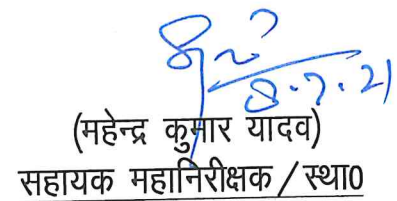 8.7.21
(महेन्द्र कुमार यादव)
सहायक महानिरीक्षक / स्था0